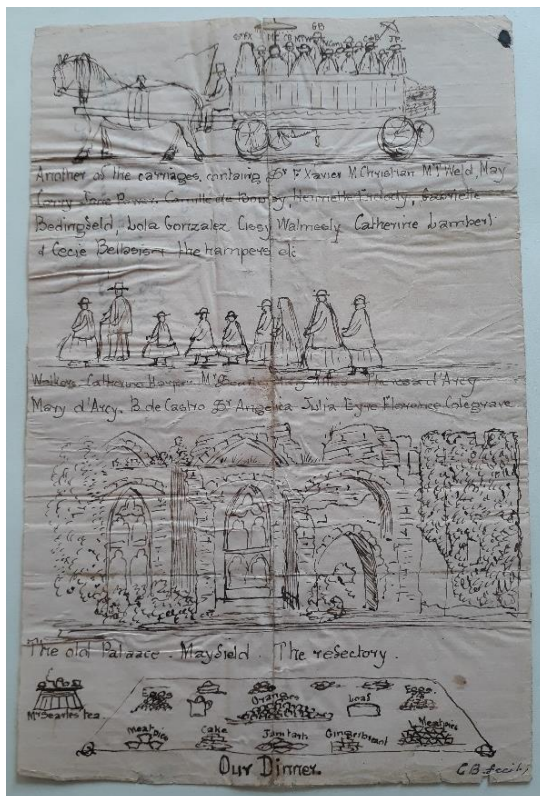 GB
Another of the carriages, containg Sr F Xavier M. Christian Mrs Weld, May
Jane Power, Camille de Henriette Gabrielle
Bedingfeld, Lola Gonzalez Cissy Walmesly Catherine Lambert
& Cecie Bellasis the hampers etc
Walkers Catherine Mr Theresa d'Arcy
Mary d'Arcy. B. de Castro Sr Angelica Julia Eyre Florence Colegrave
The old Palaace. Mayfield. The refectory.
Eggs
Oranges
Loaf
Eggs
Mr Searles tea
Meat pies
Cake
Jam tart
Gingerbread
Meat pies
Our Dinner.
G B fecit